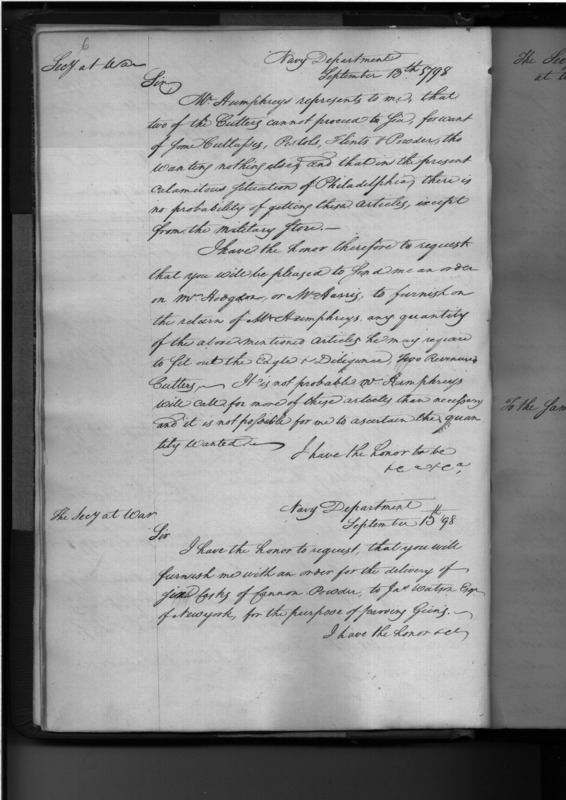 6
Secy at War
Navy Department
September 13th 1798
Sir
Mr Humphreys represents to me, that
two of the Cutters cannot proceed to Sea, for want
of some Cutlasses, Pistols, Flints & Powder, tho
wanting nothing else, and that in the present
calamitous situation of Philadelphia, there is
no probability of getting these articles, except
from the military store.—
I have the honor therefore to request
that you will be pleased to send me an order
on Mr Hodgdon, or Mr Harris, to furnish on
the return of Mr Humphreys, any quantity
of the above mentioned articles he may require
to fit out the Eagle & Diligence, two Revenue
Cutters.— It is not probable Mr Humphreys
will call for more of these articles than necessary
and it is not possible for me to ascertain the quan
tity wanted &c
I have the honor to be
&ca &ca,
The Secy at War
Navy Department
September 13th 98
Sir
I have the honor to request, that you will
furnish me with an order for the delivery of
Casks of Cannon Powder, to Jno Watson Esqr
of New York, for the purpose of proving Guns.—
I have the honor &c
The Sec
at W
To the Sam